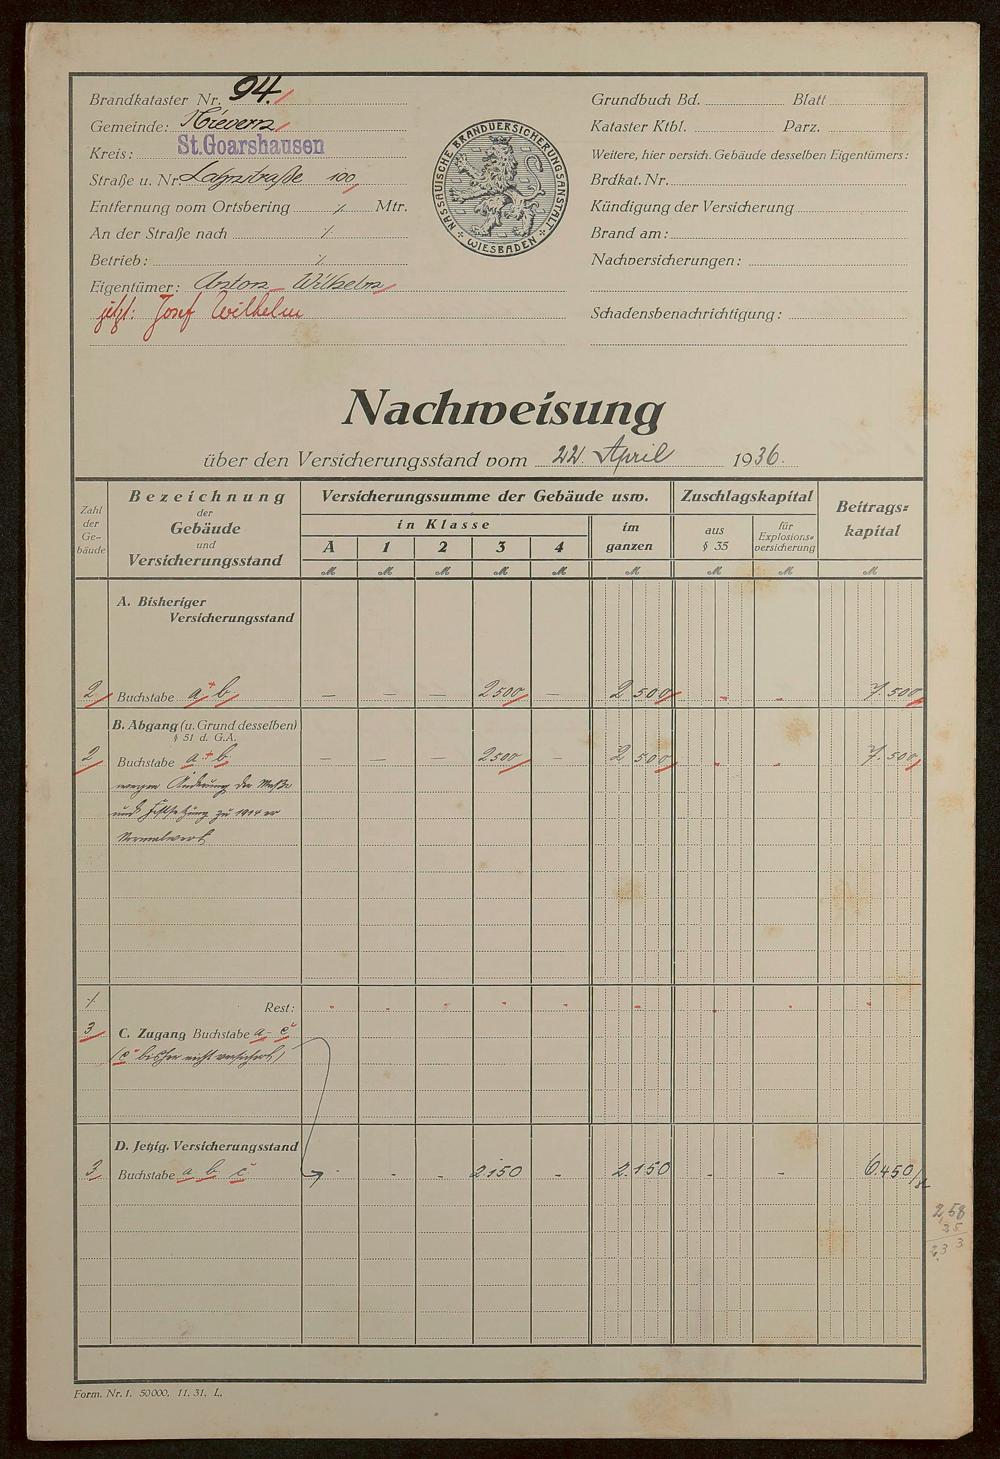 Brandkataster Nr. 94.
Gemeinde: Nievern
Kreis: St. Goarshausen
Straße u. Nr. Lahnstraße 100
Entfernung vom Ortsbering ./. Mtr.
An der Straße nach ./.
Betrieb: ./.
Eigentümer: Anton Wilhelm
jetzt: Josef Wilhelm
NASSAUISCHE BRANDVERSICHERUNGSANSTALT
WIESBADEN
Grundbuch Bd. Blatt
Kataster Ktbl. Parz.
Weitere, hier versich. Gebäude desselben Eigentümers:
Brdkat. Nr.
Kündigung der Versicherung
Brand am:
Nachversicherungen:
Schadensbenachrichtigung:
Nachweisung
über den Versicherungsstand vom 22. April 1936.
Zahl der Ge-bäude
Bezeichnung der Gebäude und Versicherungsstand
Versicherungssumme der Gebäude usw.
in Klasse
A 1 2 3 4
im ganzen
Zuschlagskapital
aus § 35
für Explosions-versicherung
Beitrags-kapital
M M M M M M M M M
A. Bisheriger
Versicherungsstand
2 Buchstabe a + b – – – 2500 – 2 500 - - 7.500
B. Abgang (u. Grund desselben)
§ 51 d. G.A.
2 Buchstabe a + b – – – 2500 – 2 500 - - 7.500
wegen Änderung der Maße
und Festsetzung zu 1914 er
Normalwert
./. Rest: - - - - - - - - -
3 C. Zugang Buchstabe a - c
(c bisher nicht versichert)
D. Jetzig. Versicherungsstand
3 Buchstabe a b c - - - 2150 - 2.150 - - 6.450
2,58
35
Form. Nr. 1. 50000. 11. 31. L.